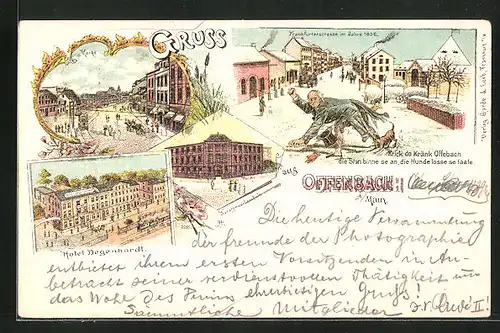 GRUSS
Markt
Frankfurterstrasse im Jahre 1836.
Krick do Kränk Offebach
die Stan binne se an, die Hunde losse se laafe
aus
OFFENBACH
a/ Main.
Hotel Degenhardt.
Die heutige Versammlung
der Freunde der Photographie
entbietet ihrem ersten Vorsitzenden in An-
betracht seiner verdienstvollen Thätigkeit um
das Wohl des Vereins ehrerbietigen Gruss!
Sämmtliche Mitglieder